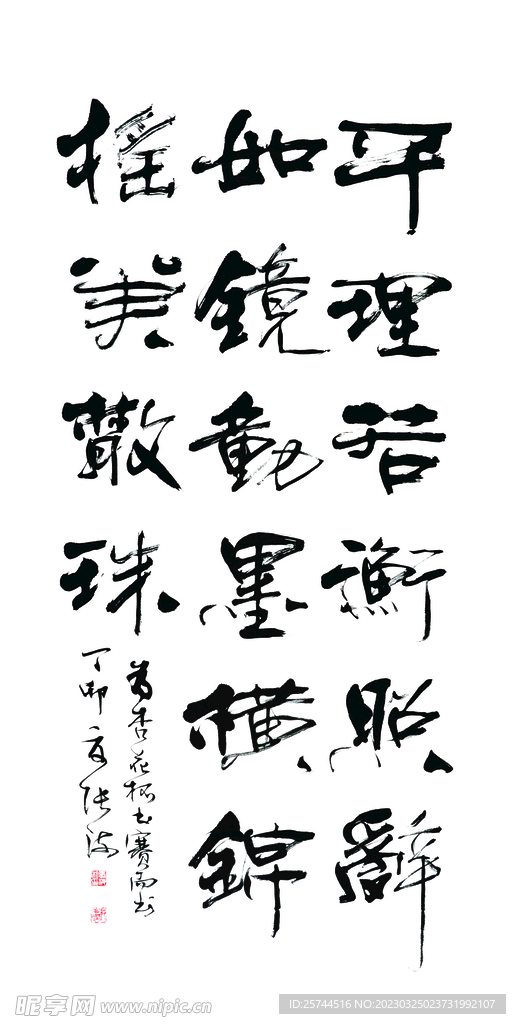 平理若衡照辭
如鏡動墨橫錦
搖筆散珠
為杏花杯书賽而书
丁卯夏张海
昵享网 www.nipic.cn
ID:25744516 NO:20230325023731992107